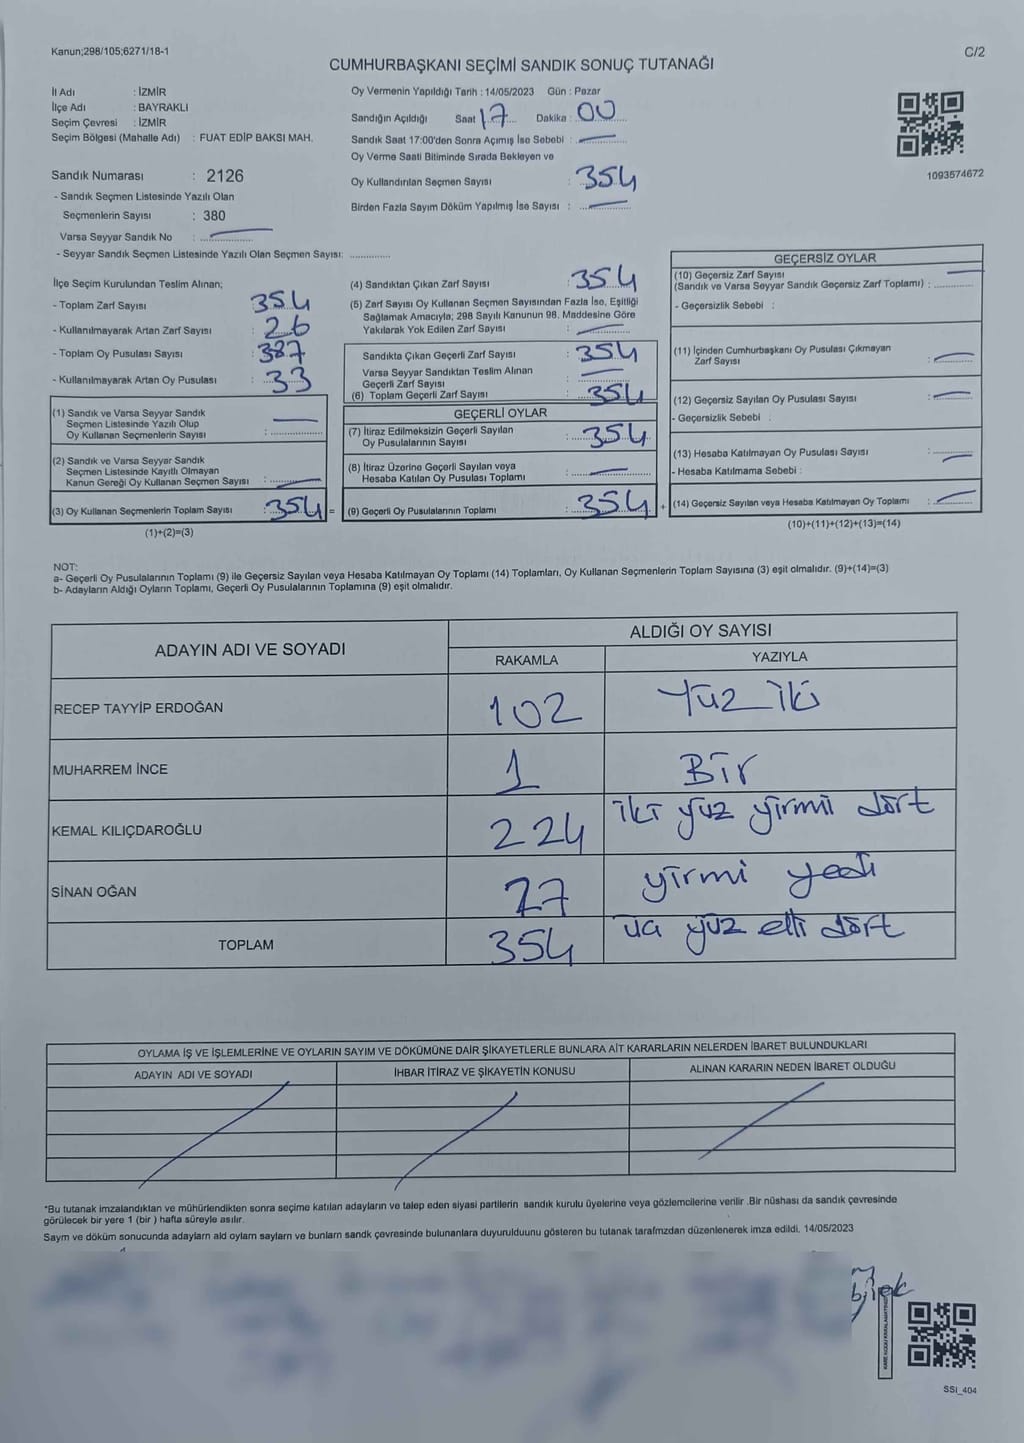 Kanun;298/105;6271/18-1
C/2
CUMHURBAŞKANI SEÇİMİ SANDIK SONUÇ TUTANAĞI
İl Adı : İZMİR
İlçe Adı : BAYRAKLI
Seçim Çevresi : İZMİR
Seçim Bölgesi (Mahalle Adı) : FUAT EDİP BAKSI MAH.
Sandık Numarası : 2126
- Sandık Seçmen Listesinde Yazılı Olan
Seçmenlerin Sayısı : 380
Varsa Seyyar Sandık No :
- Seyyar Sandık Seçmen Listesinde Yazılı Olan Seçmen Sayısı:
Oy Vermenin Yapıldığı Tarih : 14/05/2023 Gün : Pazar
Sandığın Açıldığı Saat : 17 Dakika : 00
Sandık Saat 17:00'den Sonra Açımış İse Sebebi :
Oy Verme Saati Bitiminde Sırada Bekleyen ve
Oy Kullandırılan Seçmen Sayısı : 354
Birden Fazla Sayım Döküm Yapılmış İse Sayısı :
1093574672
İlçe Seçim Kurulundan Teslim Alınan;
- Toplam Zarf Sayısı : 354
- Kullanılmayarak Artan Zarf Sayısı : 26
- Toplam Oy Pusulası Sayısı : 387
- Kullanılmayarak Artan Oy Pusulası : 33
(1) Sandık ve Varsa Seyyar Sandık
Seçmen Listesinde Yazılı Olup
Oy Kullanan Seçmenlerin Sayısı :
(2) Sandık ve Varsa Seyyar Sandık
Seçmen Listesinde Kayıtlı Olmayan
Kanun Gereği Oy Kullanan Seçmen Sayısı :
(3) Oy Kullanan Seçmenlerin Toplam Sayısı : 354 =
(1)+(2)=(3)
(4) Sandıktan Çıkan Zarf Sayısı : 354
(5) Zarf Sayısı Oy Kullanan Seçmen Sayısından Fazla İse, Eşitliği
Sağlamak Amacıyla; 298 Sayılı Kanunun 98. Maddesine Göre
Yakılarak Yok Edilen Zarf Sayısı :
Sandıkta Çıkan Geçerli Zarf Sayısı : 354
Varsa Seyyar Sandıktan Teslim Alınan
Geçerli Zarf Sayısı :
(6) Toplam Geçerli Zarf Sayısı : 354
GEÇERLİ OYLAR
(7) İtiraz Edilmeksizin Geçerli Sayılan
Oy Pusulalarının Sayısı : 354
(8) İtiraz Üzerine Geçerli Sayılan veya
Hesaba Katılan Oy Pusulası Toplamı :
(9) Geçerli Oy Pusulalarının Toplamı : 354 +
GEÇERSİZ OYLAR
(10) Geçersiz Zarf Sayısı
(Sandık ve Varsa Seyyar Sandık Geçersiz Zarf Toplamı) :
- Geçersizlik Sebebi :
(11) İçinden Cumhurbaşkanı Oy Pusulası Çıkmayan
Zarf Sayısı :
(12) Geçersiz Sayılan Oy Pusulası Sayısı :
- Geçersizlik Sebebi :
(13) Hesaba Katılmayan Oy Pusulası Sayısı :
- Hesaba Katılmama Sebebi :
(14) Geçersiz Sayılan veya Hesaba Katılmayan Oy Toplamı :
(10)+(11)+(12)+(13)=(14)
NOT:
a- Geçerli Oy Pusulalarının Toplamı (9) ile Geçersiz Sayılan veya Hesaba Katılmayan Oy Toplamı (14) Toplamları, Oy Kullanan Seçmenlerin Toplam Sayısına (3) eşit olmalıdır. (9)+(14)=(3)
b- Adayların Aldığı Oyların Toplamı, Geçerli Oy Pusulalarının Toplamına (9) eşit olmalıdır.
ADAYIN ADI VE SOYADI
ALDIĞI OY SAYISI
RAKAMLA YAZIYLA
RECEP TAYYİP ERDOĞAN 102 Yüz iki
MUHARREM İNCE 1 Bir
KEMAL KILIÇDAROĞLU 224 iki yüz yirmi dört
SİNAN OĞAN 27 yirmi yedi
TOPLAM 354 üç yüz elli dört
OYLAMA İŞ VE İŞLEMLERİNE VE OYLARIN SAYIM VE DÖKÜMÜNE DAİR ŞİKAYETLERLE BUNLARA AİT KARARLARIN NELERDEN İBARET BULUNDUKLARI
ADAYIN ADI VE SOYADI İHBAR İTİRAZ VE ŞİKAYETİN KONUSU ALINAN KARARIN NEDEN İBARET OLDUĞU
*Bu tutanak imzalandıktan ve mühürlendikten sonra seçime katılan adayların ve talep eden siyasi partilerin sandık kurulu üyelerine veya gözlemcilerine verilir .Bir nüshası da sandık çevresinde
görülecek bir yere 1 (bir ) hafta süreyle asılır.
Saym ve döküm sonucunda adaylarn ald oylam saylarn ve bunlarn sandk çevresinde bulunanlara duyurulduunu gösteren bu tutanak tarafmzdan düzenlenerek imza edildi. 14/05/2023
SSI_404